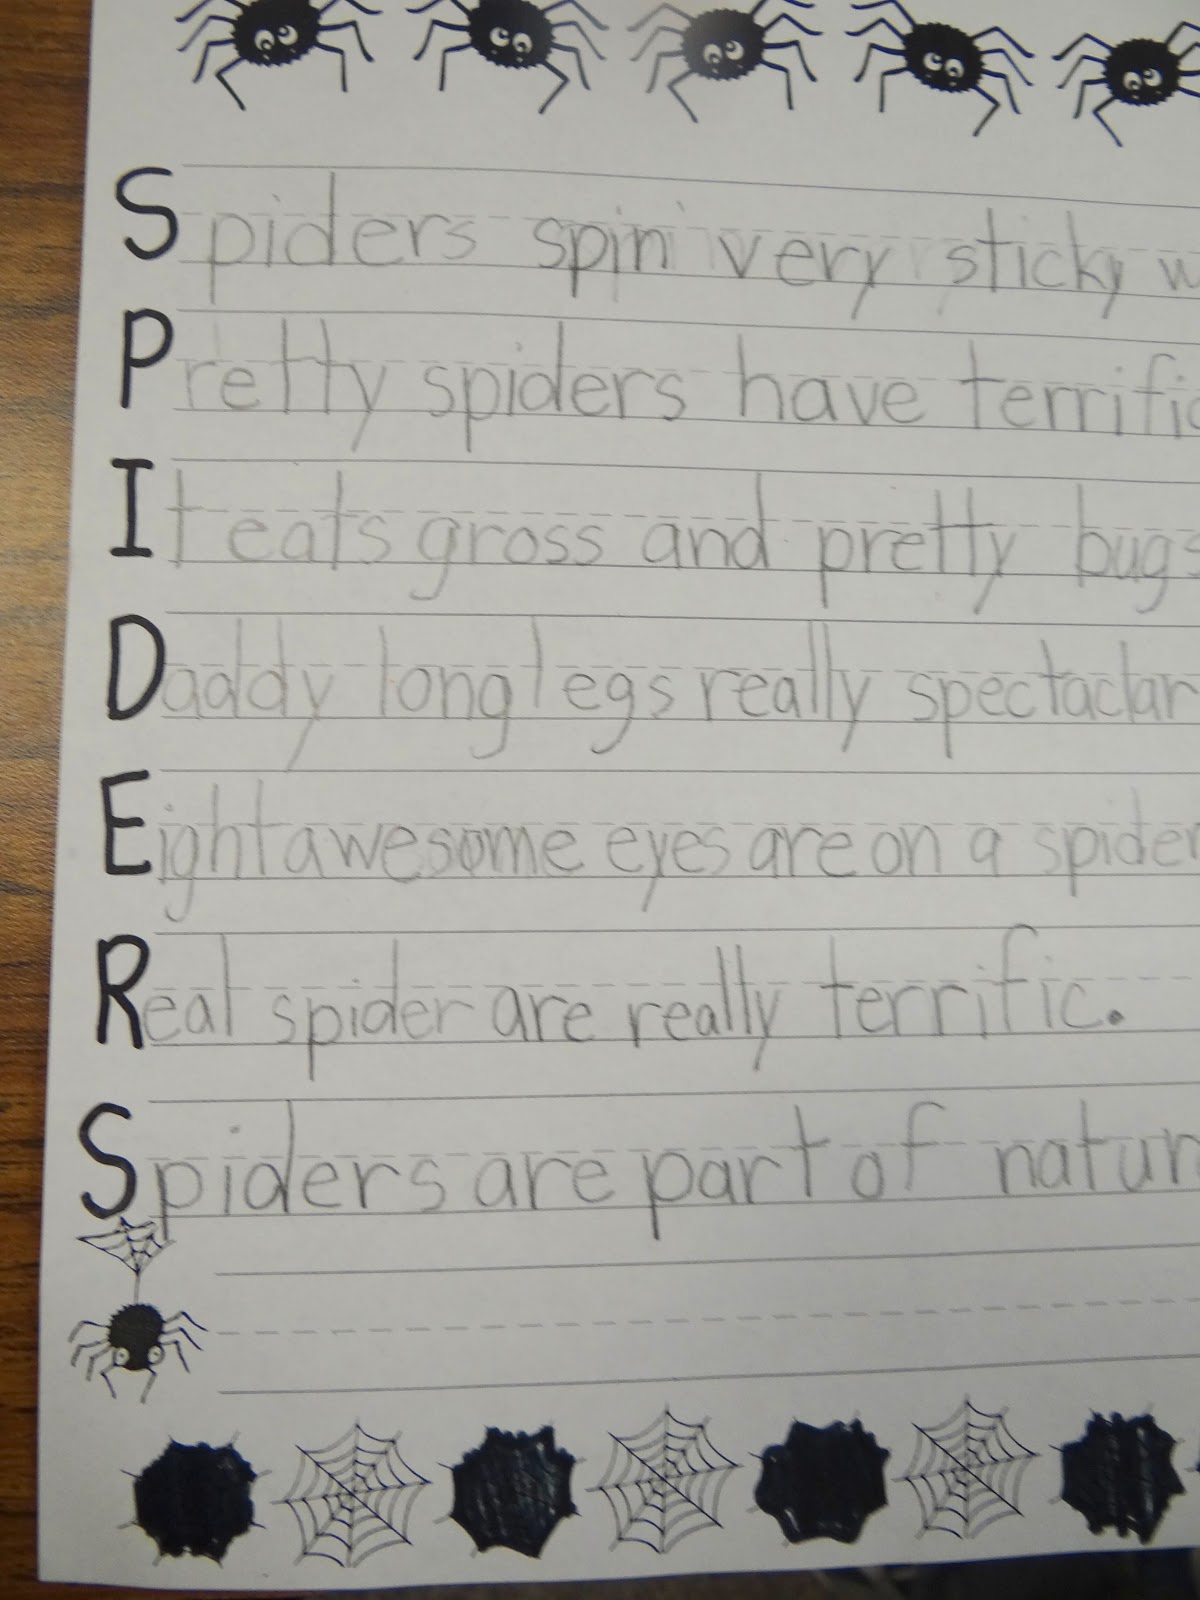 Spiders spin very sticky w
Pretty spiders have terrific
It eats gross and pretty bugs
Daddy long legs really spectaclar
Eight awesome eyes are on a spider
Real spider are really terrific.
Spiders are part of natur